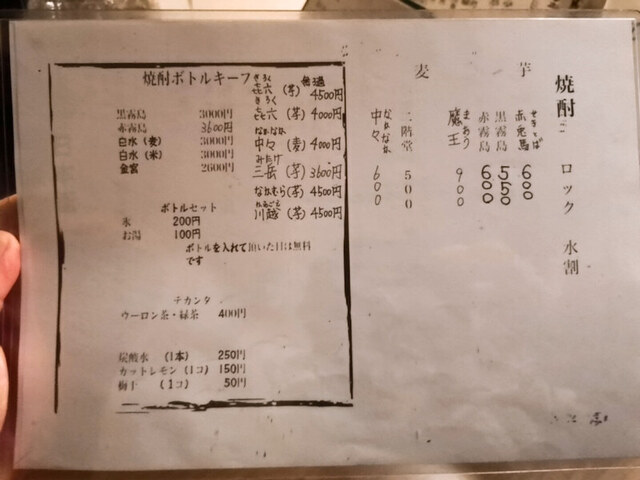 焼酎 ロック 水割
芋
せきとば
赤兎馬 600
黒霧島 550
赤霧島 600
まおう
魔王 900
麦
二階堂 500
なかなか
中々 600
焼酎ボトルキープ
黒霧島 3000円
赤霧島 3600円
白水(麦) 3000円
白水(米) 3000円
金宮 2600円
(芋) 4500円
きろく
㐂六 (芋) 4000円
なかなか
中々 (麦) 4000円
みたけ
三岳 (芋) 3600円
なかむら (芋) 4500円
川越 (芋) 4500円
ボトルセット
氷 200円
お湯 100円
ボトルを入れて頂いた日は無料
です
デカンタ
ウーロン茶・緑茶 400円
炭酸水 (1本) 250円
カットレモン(1コ) 150円
梅干 (1コ) 50円